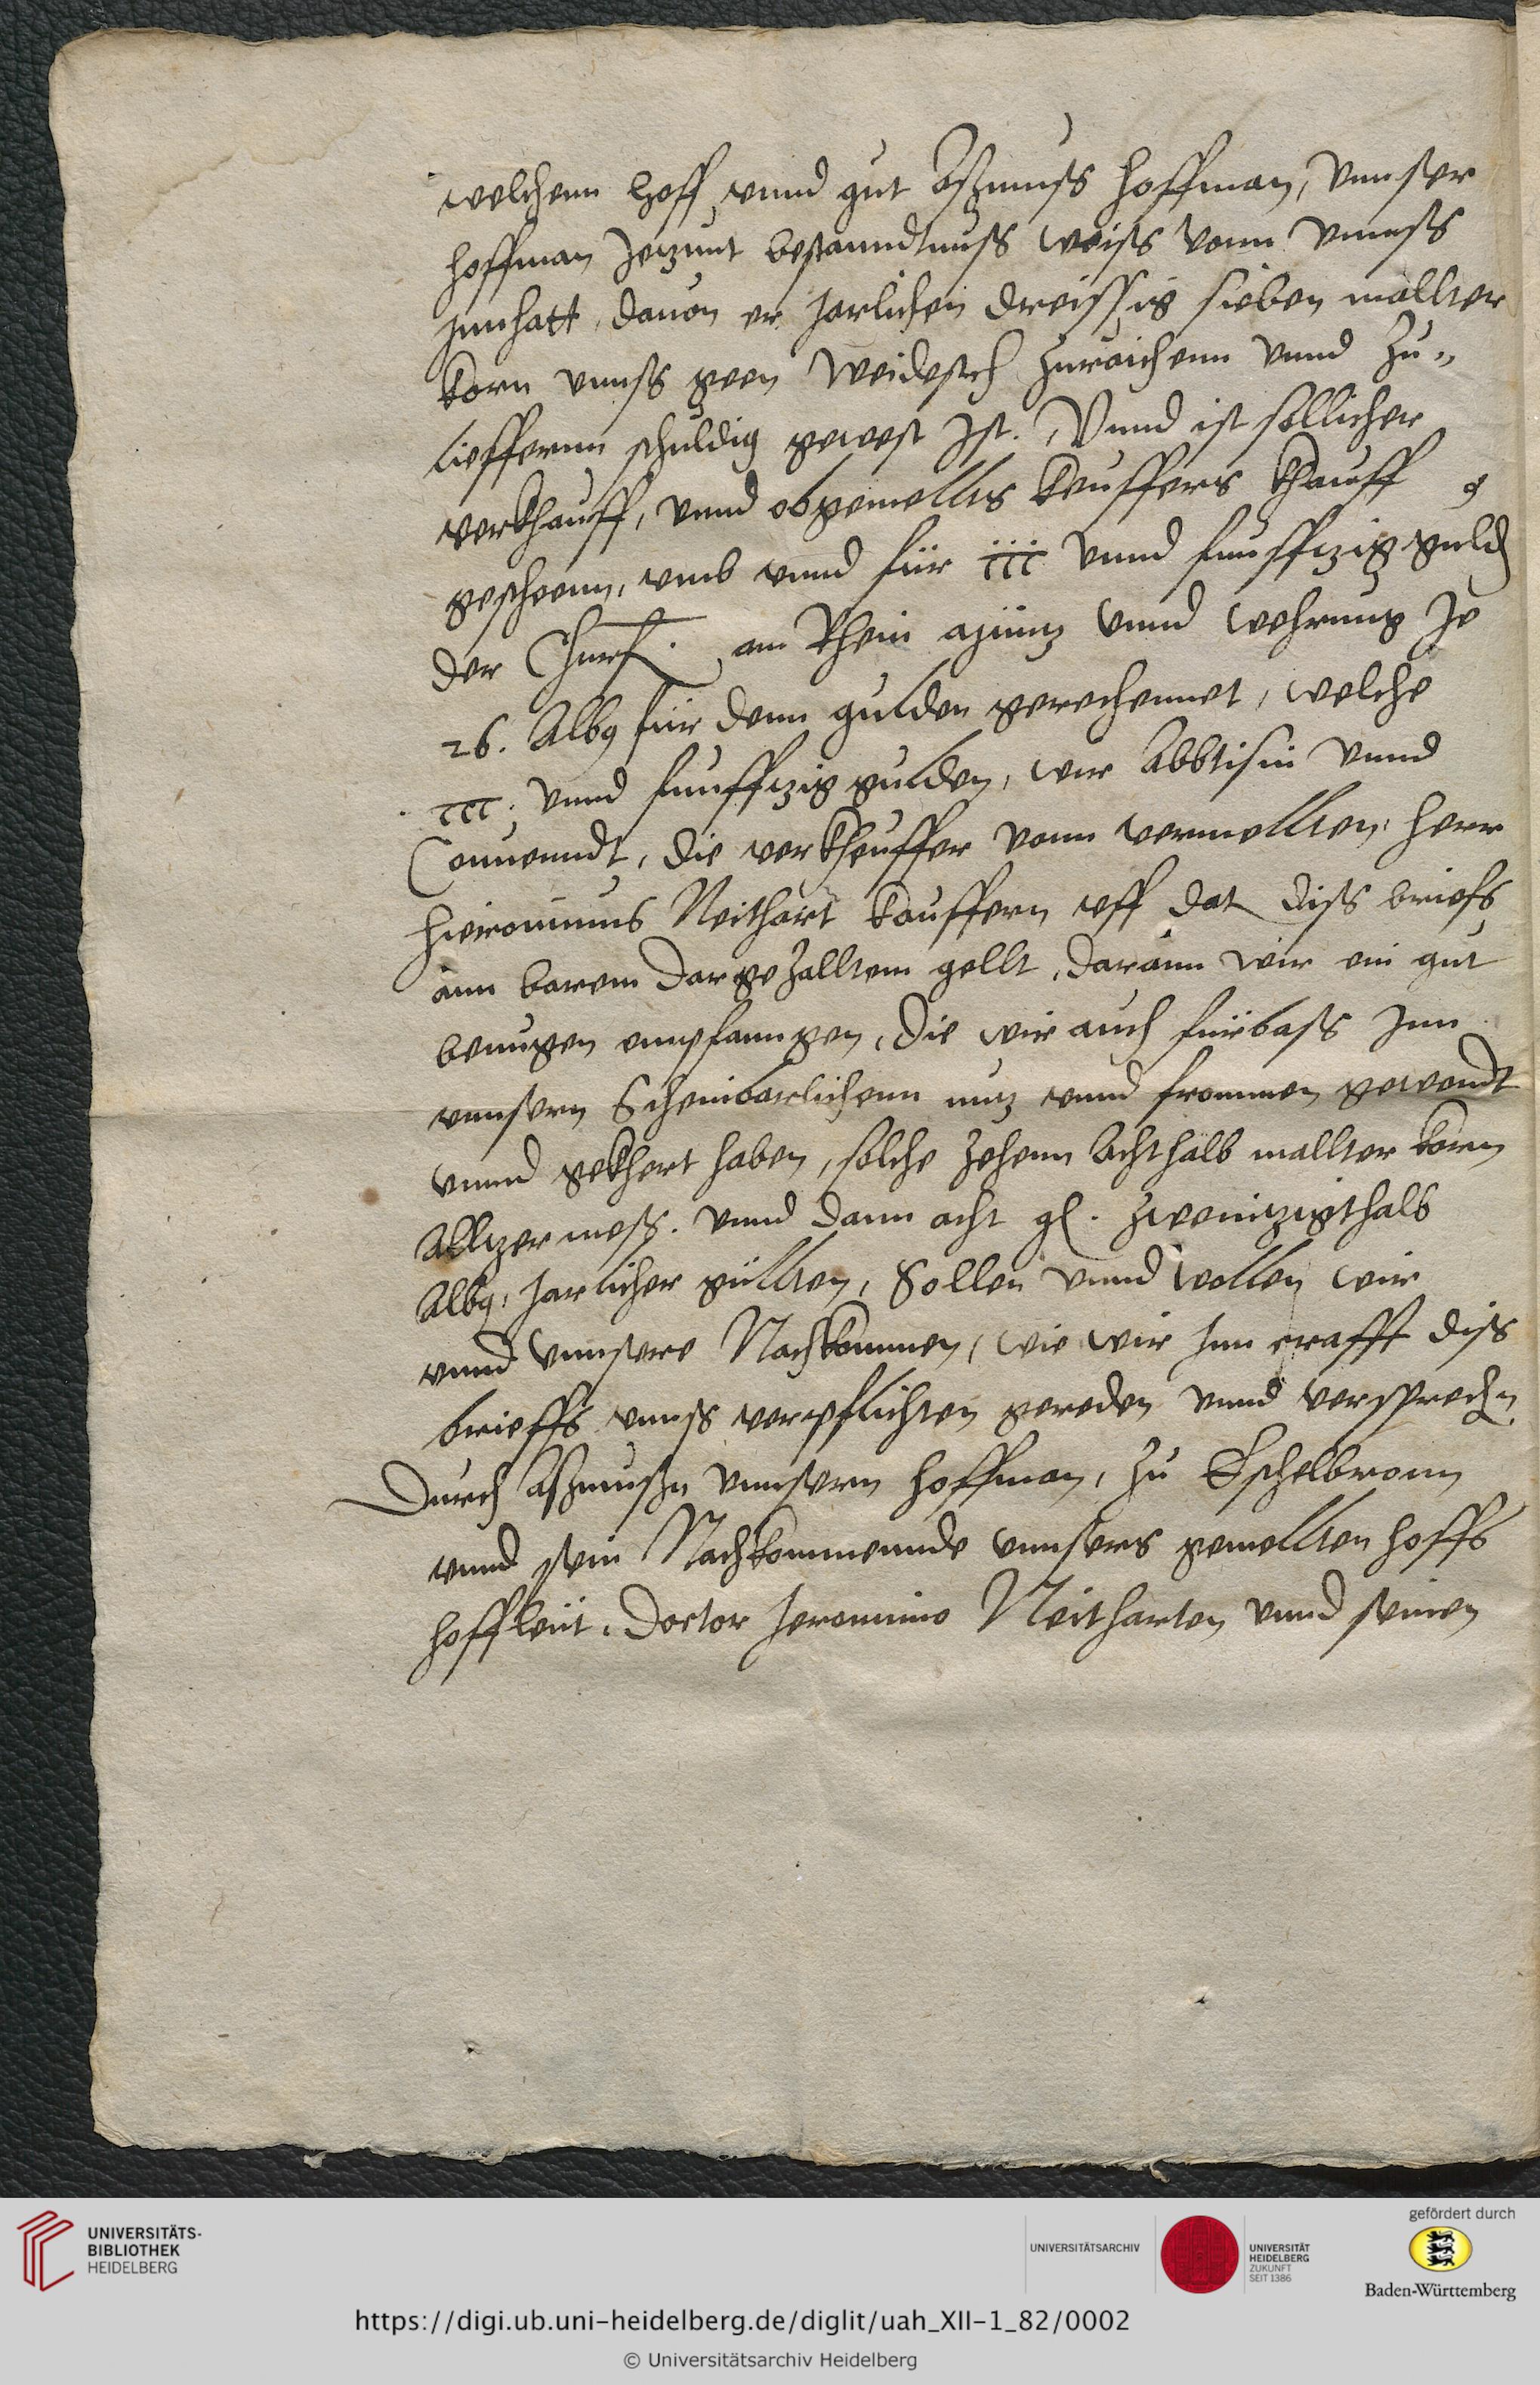 welchenn hoff vnnd gut Aßmuss hoffman, vnnser
hoffman Jetzunt bestanndtnuss weiss vonn vnnss
Jnnhatt, dauon er Jarlichen dreissig sieben mallter
korn vnnss geen zureichenn vnnd zu„
lieffernn schuldig gewest Jst. Vnnd ist sollicher
verkhauff, vnnd obgemellts keuffers khauff
gescheenn, vmb vnnd für iiic vnnd funfftzig guld
der Churf. am Rhein müntz vnnd wehrung Je
26. Albg für denn gulden gerechennet, welche
iiic. vnnd funfftzig gulden, wir Abbtisin vnnd
Conuenndt, die verkheuffer vonn vermellten herr
Hieronimus Neithart kauffern vff dat diss briefs
ann barem dargezalltem gellt, darann wir ein gut
benugen empfanngen, die wir auch fürbass Jnn
vnnsern scheinbarlichenn nutz vnnd frommen gewendt
vnnd gekhert haben, solche zehenn Achthalb mallter korn
Altzer mess. vnnd dann acht gl. zwenitzigthalb
Albg. Jarlicher güllten, Sollen vnnd wollen wir
vnnd vnnsere Nachkommen, wie wir Jnn crafft diss
brieffs vnnss verpflichten gereden vnnd versprechn
Durch Aßmussn vnnsern hoffman, zu Eschelbronn
vnnd sein Nachkommennde vnnsers gemellten hoffs
hoffleüt. Doctor Jeronimo Neitharten vnnd seinen
UNIVERSITÄTS-
BIBLIOTHEK
HEIDELBERG
UNIVERSITÄTSARCHIV
UNIVERSITÄT
HEIDELBERG
ZUKUNFT
SEIT 1386
gefördert durch
Baden-Württemberg
https://digi.ub.uni-heidelberg.de/diglit/uah_XII-1_82/0002
© Universitätsarchiv Heidelberg